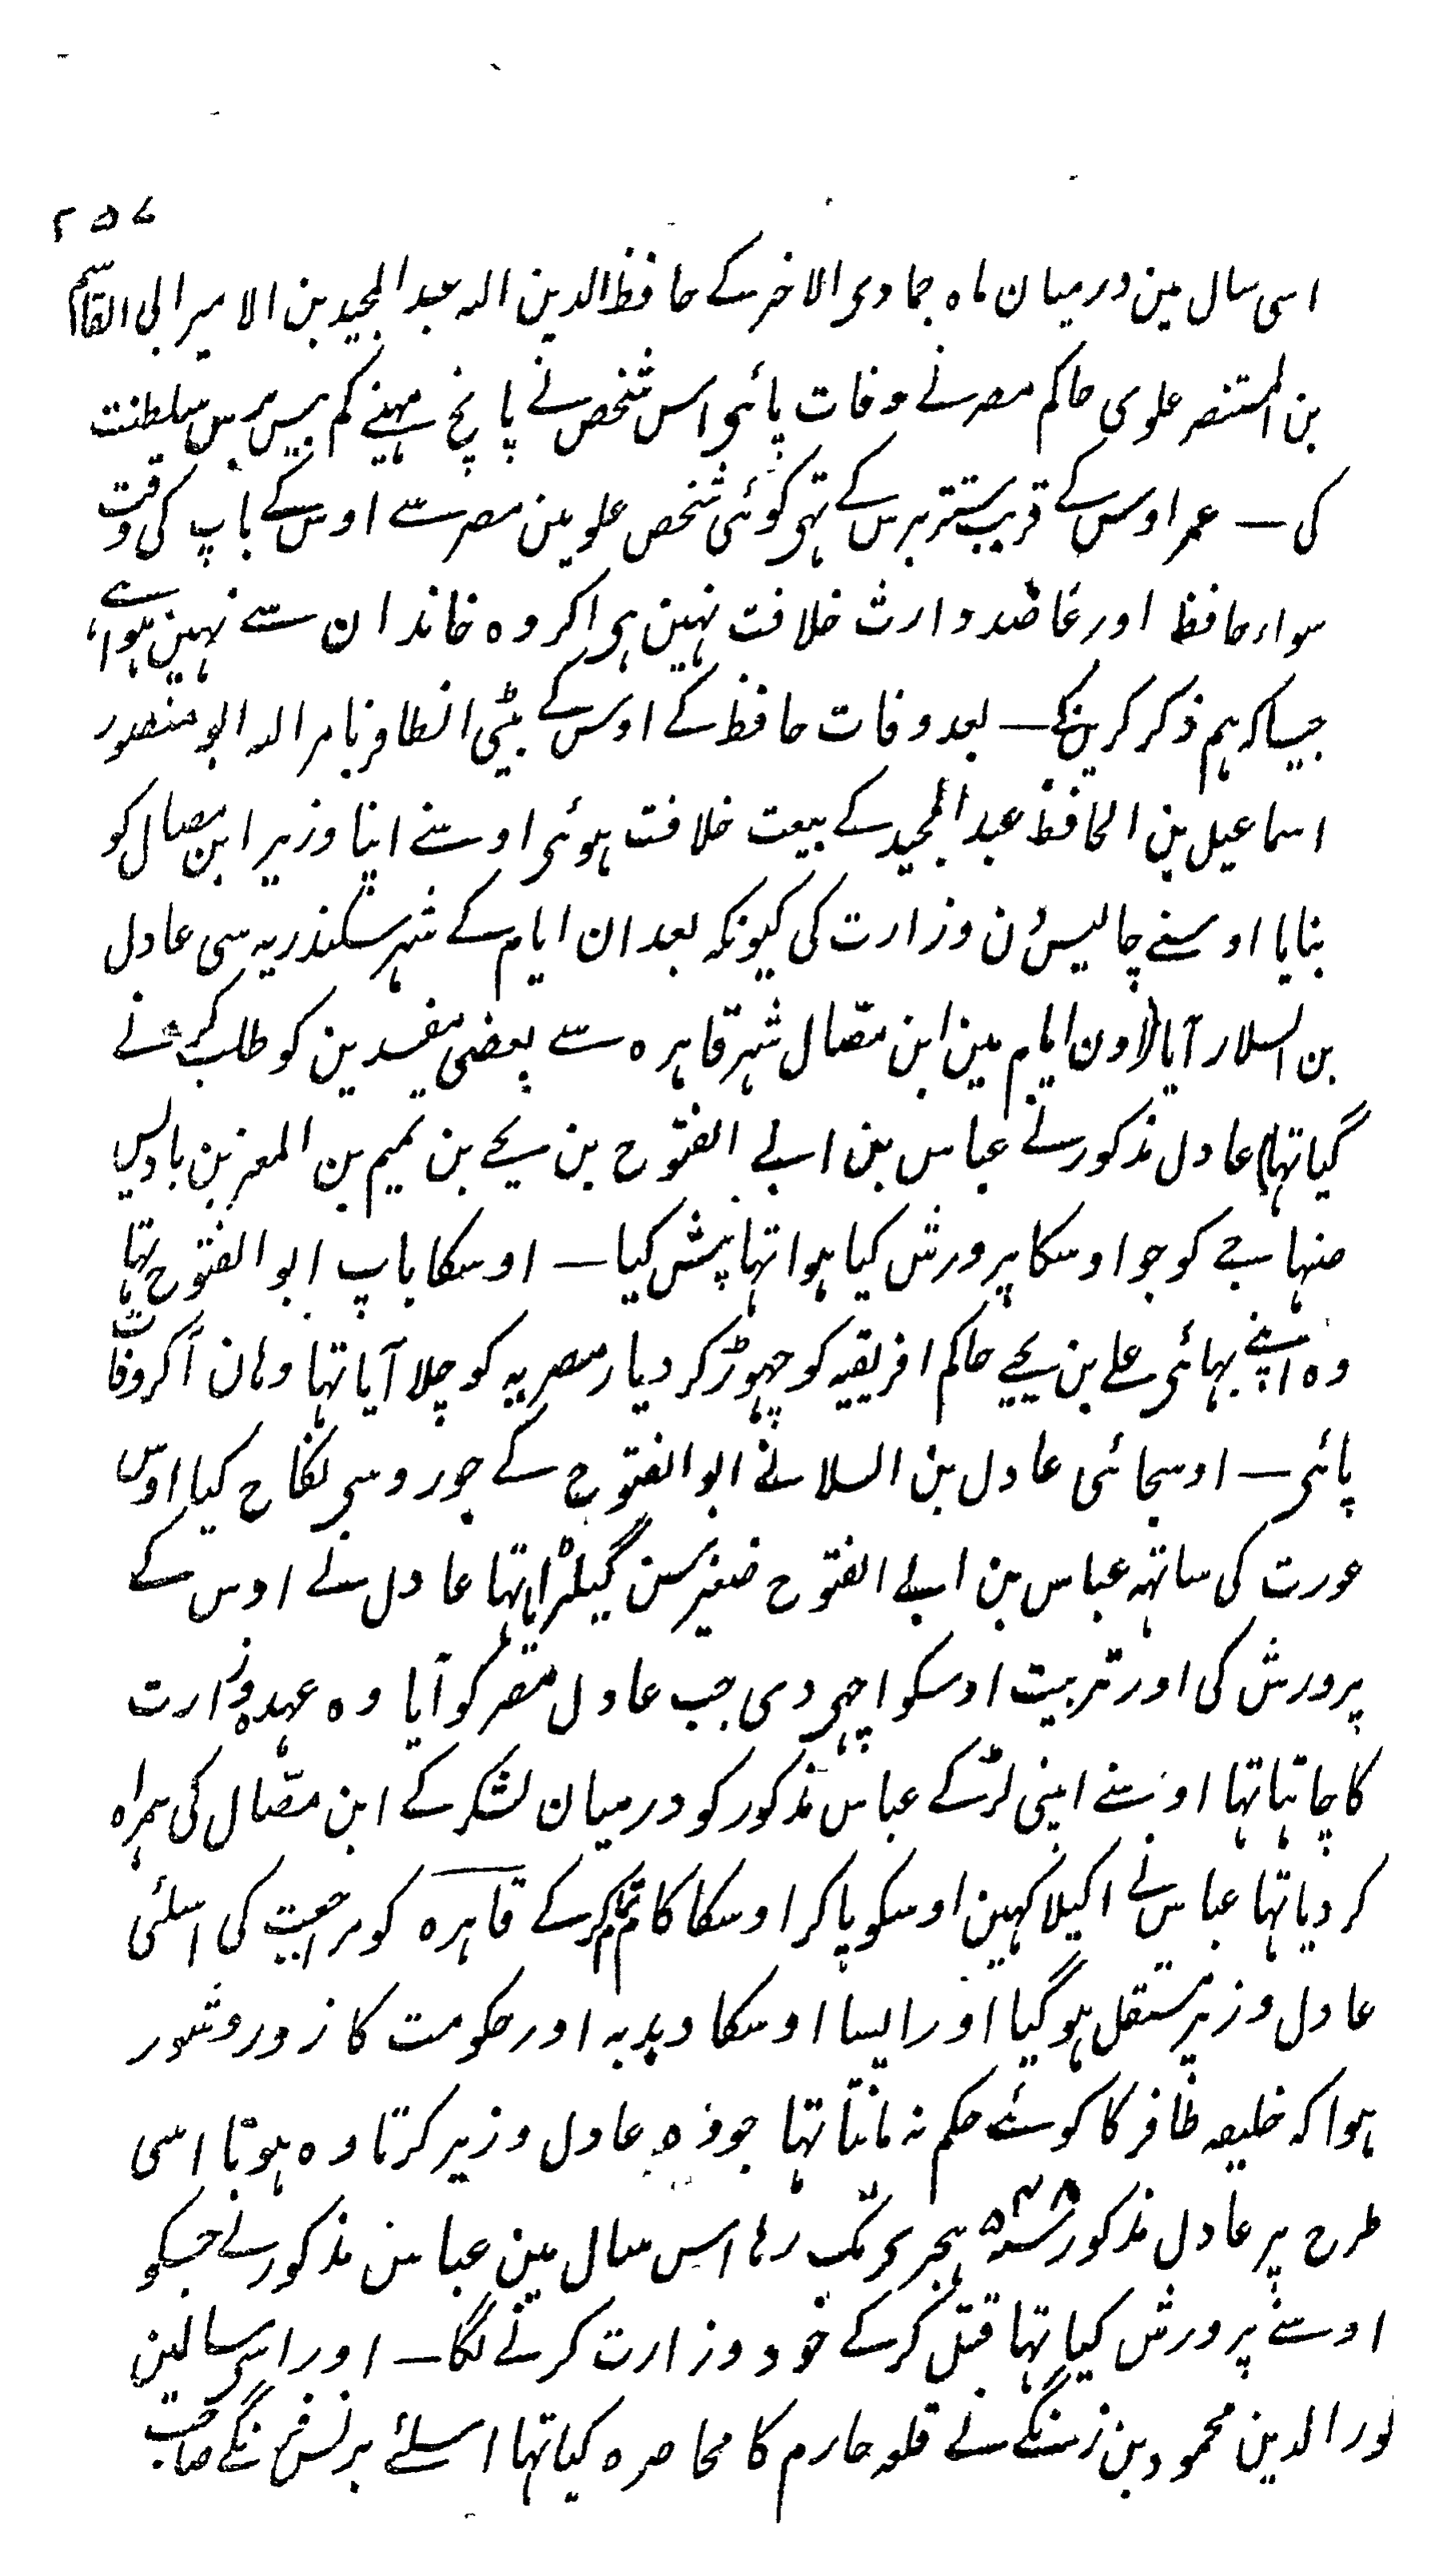 ۲۵۷
اسی سال مین درمیان ماہ جمادی الاخر کے حافظ الدین اللہ عبد المجید بن الامیر ابی القاسم
بن المستنصر علوی حاکم مصر نے وفات پائی اس شخص نے پانچ مہینے کم بیس برس سلطنت
کی — عمر اوس کے قریب ستتر برس کے تہی کوئی شخص علویین مصر سے اوس کے باپ کی وقت
سواء حافظ اور عاضد وارث خلافت نہین ہی اکر وہ خاندان سے نہین ہوا ہے،
جیسا کہ ہم ذکر کرینگے — بعد وفات حافظ کے اوس کے بیٹی الظافر بامر اللہ ابو منصور
اسماعیل بن الحافظ عبد المجید کے بیعت خلافت ہوئی اوسنے اپنا وزیر ابن مصال کو
بنایا اوسنے چالیس دن وزارت کی کیونکہ بعد ان ایام کے شہر سکندریہ سی عادل
بن السلار آیا (اون ایام مین ابن مصّال شہر قاہرہ سے بعضی مفسدین کو طلب کرنے
گیا تہا) عادل مذکور نے عباس بن ابے الفتوح بن یحے بن تمیم بن المعز بن بادیس
صنہاجے کو جو اوسکا پرورش کیا ہوا تہا پیش کیا — اوسکا باپ ابو الفتوح تہا
وہ اپنے بہائی علے بن یحیے حاکم افریقیہ کو چہوڑ کر دیار مصریہ کو چلا آیا تہا وہان آکر وفات
پائی — اوسجائی عادل بن السلا نے ابو الفتوح کے جورو سی نکاح کیا اوس
عورت کی ساتہہ عباس بن ابے الفتوح صغیر سن گیلڑ آیا تہا عادل نے اوس کے
پرورش کی اور تربیت اوسکو اچہی دی جب عادل مصر کو آیا وہ عہدہ وزارت
کا چاہتا تہا اوسنے اپنی لڑکے عباس مذکور کو درمیان لشکر کے ابن مصّال کی ہمراہ
کر دیا تہا عباس نے اکیلا کہین اوسکو پا کر اوسکا کام تمام کرکے قاہرہ کو مراجعت کی اسلئی
عادل وزیر مستقل ہو گیا اور ایسا اوسکا دبدبہ اور حکومت کا زور و شور
ہوا کہ خلیفہ ظافر کا کوئے حکم نہ مانتا تہا جو وہ عادل وزیر کرتا وہ ہوتا اسی
طرح پر عادل مذکور سنہ ۵۴۸ ہجری تک رہا اس سال مین عباس مذکور نے جسکو
اوسنے پرورش کیا تہا قتل کرکے خود وزارت کرنے لگا — اور اسی سالمین
نور الدین محمود بن زنگے نے قلعہ حارم کا محاصرہ کیا تہا اسلئے برنس فرنگے صاحب